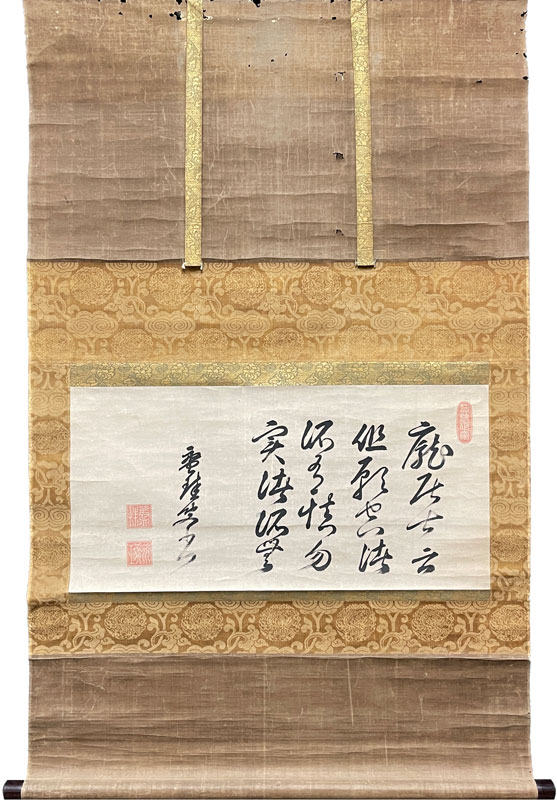 龐居士云
但願空諸
所有慎勿
実諸所無